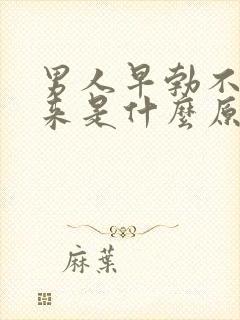 男人早勃不
来是什麼原
麻葉